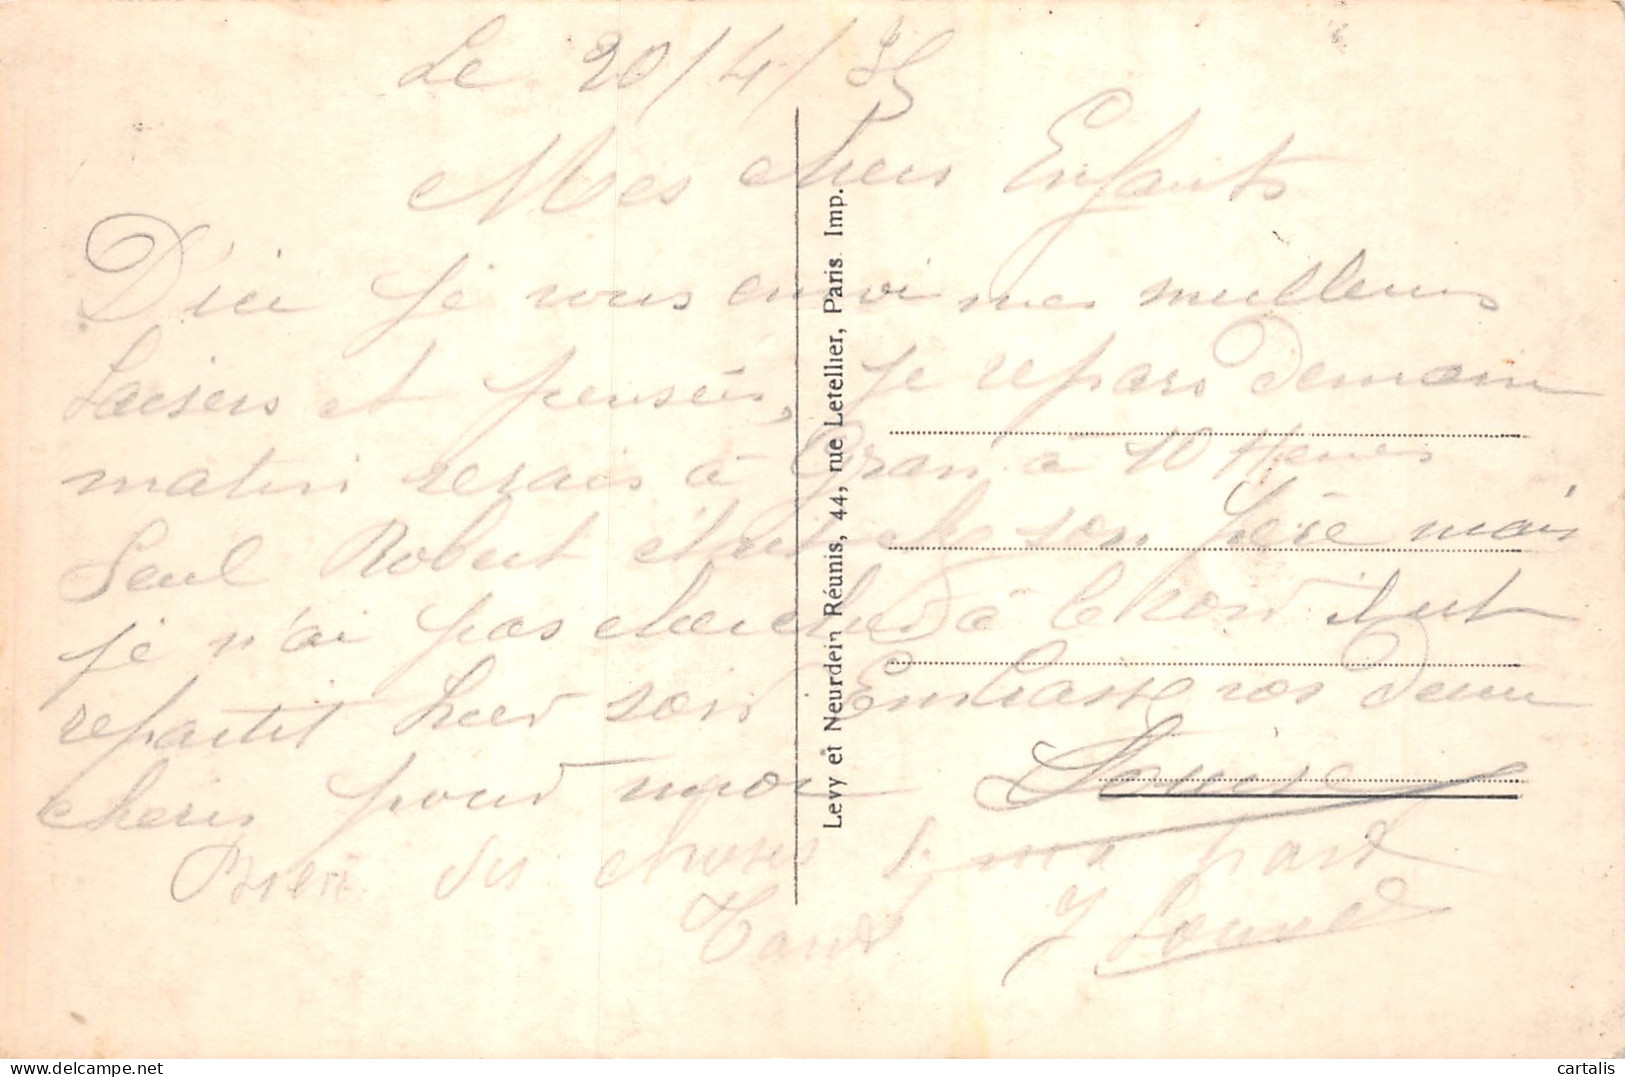 Le 20/4/35
Mes chers Enfants
D'ici je vous envoi mes meilleurs
baisers et pensées, je repars demain
matin serais à Oran à 10 Heures
Seul Robert était che son père mais
je n'ai pas chercher à le voir il est
repartit hier soir Embrasse vos deux
cheris pour moi Louise
Bien des choses de ma part
Tante J Louise
Levy et Neurdein Réunis, 44, rue Letellier, Paris Imp.
cartalis
delcampe.net